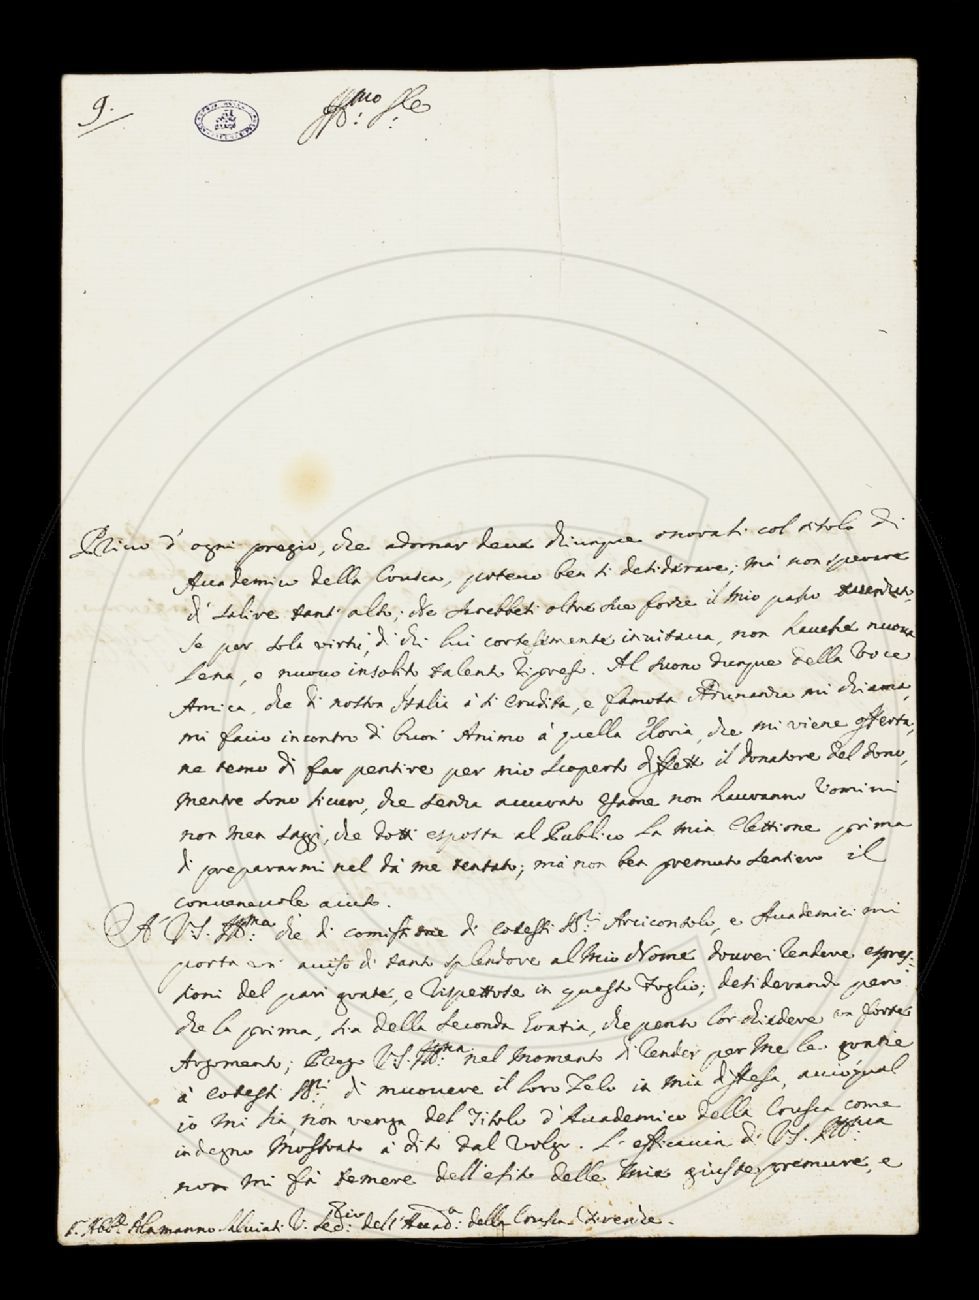 9.
Ill.mo Sig.re
Privo d'ogni pregio, che adornar deve chiunque onorati col titolo di
Academico della Crusca, poteva ben sì desiderare; mà non sperare
di salire tant'alto; che sarebbesi oltre sue forze il mio passo
se per sola virtù, di chi lui cortesemente invitava, non havesse nuova
Lena, e nuovo insolito talento ripreso. Al suono dunque della Voce
Amica, che di nostra Italia à sì erudita, e famosa Adunanza mi chiama,
mi faccio incontro di buon Animo à quella Gloria, che mi viene offerta,
ne temo di far pentire per mio scoperto diffetto il donatore del dono,
mentre sono sicuro, che senza accurato esame non hauranno Uomini
non men saggi, che dotti esposta al Publico la mia Elettione prima
di prepararmi nel dà me tentato; mà non ben premuto sentiero il
convenevole aiuto.
A VS. Ill.ma che di comissione di cotesti SS.ri Arciconsolo, e Academici mi
porta un' aviso di tanto splendore al mio Nome dovrei rendere espres-
sioni del pari grate, e rispettose in questo Foglio; desiderando però
che la prima, sia della seconda Gratia, che penso lor chiedere un forte
Argomento; Prego VS. Ill.ma nel momento di render per me le gratie
à cotesti SS.ri, di muovere il loro Zelo in mia diffesa, acciò qual
io mi sia, non venga del Titolo d'Academico della Crusca come
indegno mostrato à dito dal Volgo. L'efficacia di VS. Ill.ma
non mi fà temere dell'esito delle mie giuste premure, e
S. Abb.e Alamanno Salviati V. Seg.rio dell'Acad.a della Crusca Firenze.